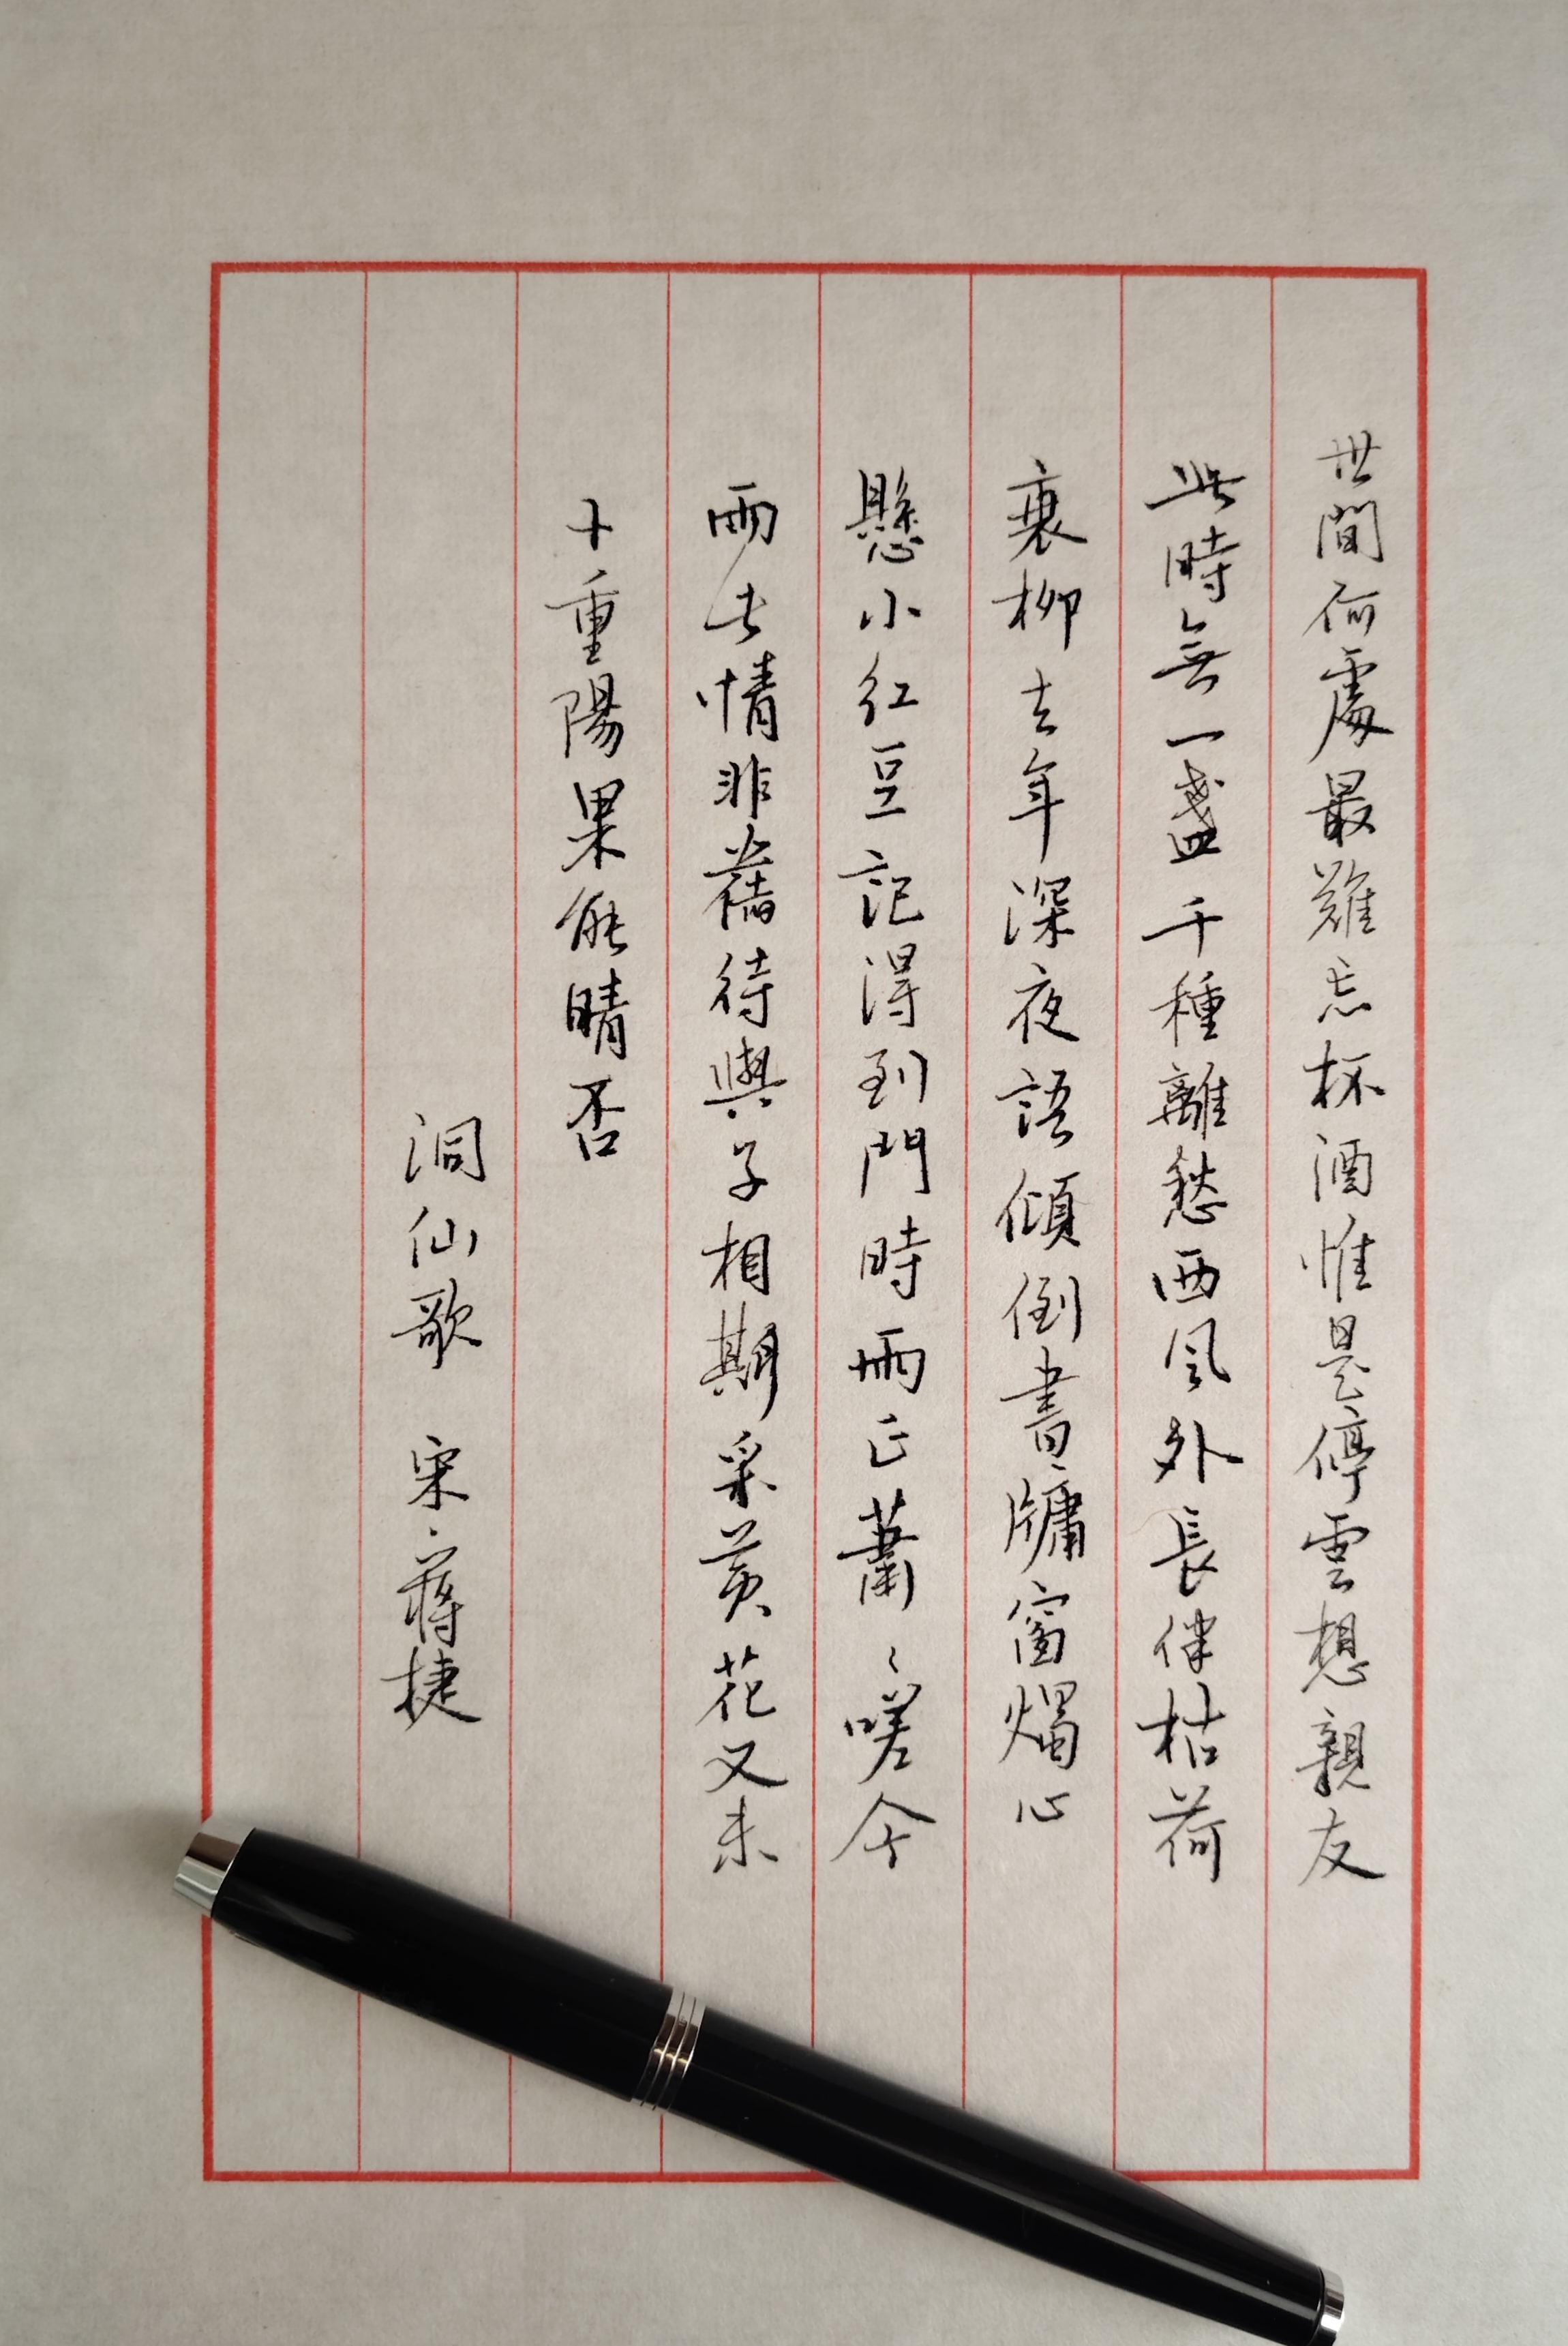 世間何處最難忘杯酒惟是停雲想親友
此時無一盞千種離愁西風外長伴枯荷
衰柳去年深夜語傾倒書牗窗燭心
懸小紅豆記得到門時雨正蕭〻嗟今
雨此情非舊待與子相期采黃花又未
卜重陽果能晴否
洞仙歌 宋·蔣捷